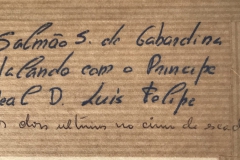 Salmão S. de Gabardina
falando com o Principe
eal D. Luis Felipe
os dois ultimos no cimo da escad